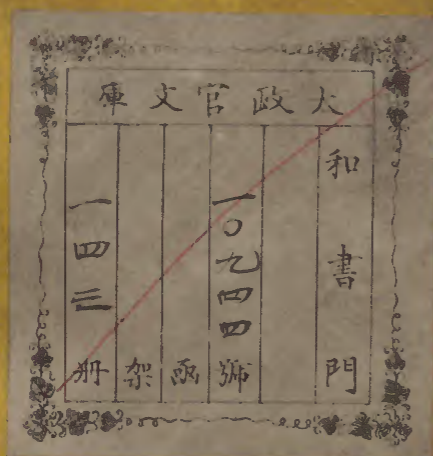 大政官文庫
和書門
一〇九四四號
函
架
一四三冊